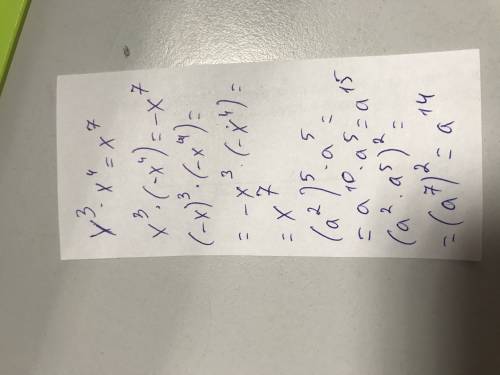 x³ · x⁴ = x⁷
x³ · (-x⁴) = -x⁷
(-x)³ · (-x⁴) =
= -x³ · (-x⁴) =
= x⁷
(a²)⁵ · a⁵ =
= a¹⁰ · a⁵ = a¹⁵
(a² · a⁵)² =
= (a⁷)² = a¹⁴